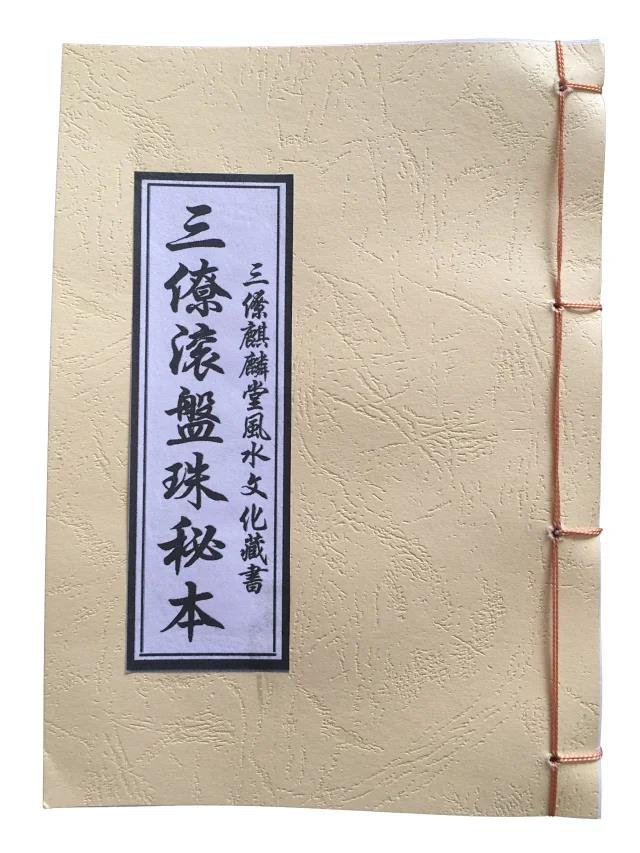 三僚麒麟堂風水文化藏書
三僚滚盤珠秘本